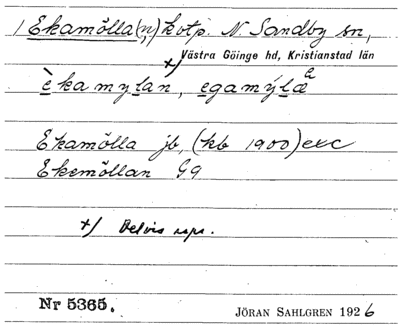 1 Ekamölla(n) kvtp. N. Sandby sn,
Västra Göinge hd, Kristianstad län
x)
èkamylan, egamýlæ
Ekamölla jb, (kb 1900) etc
Ekemöllan G9
x) Delvis rspr.
Nr 5365.
JÖRAN SAHLGREN 1926